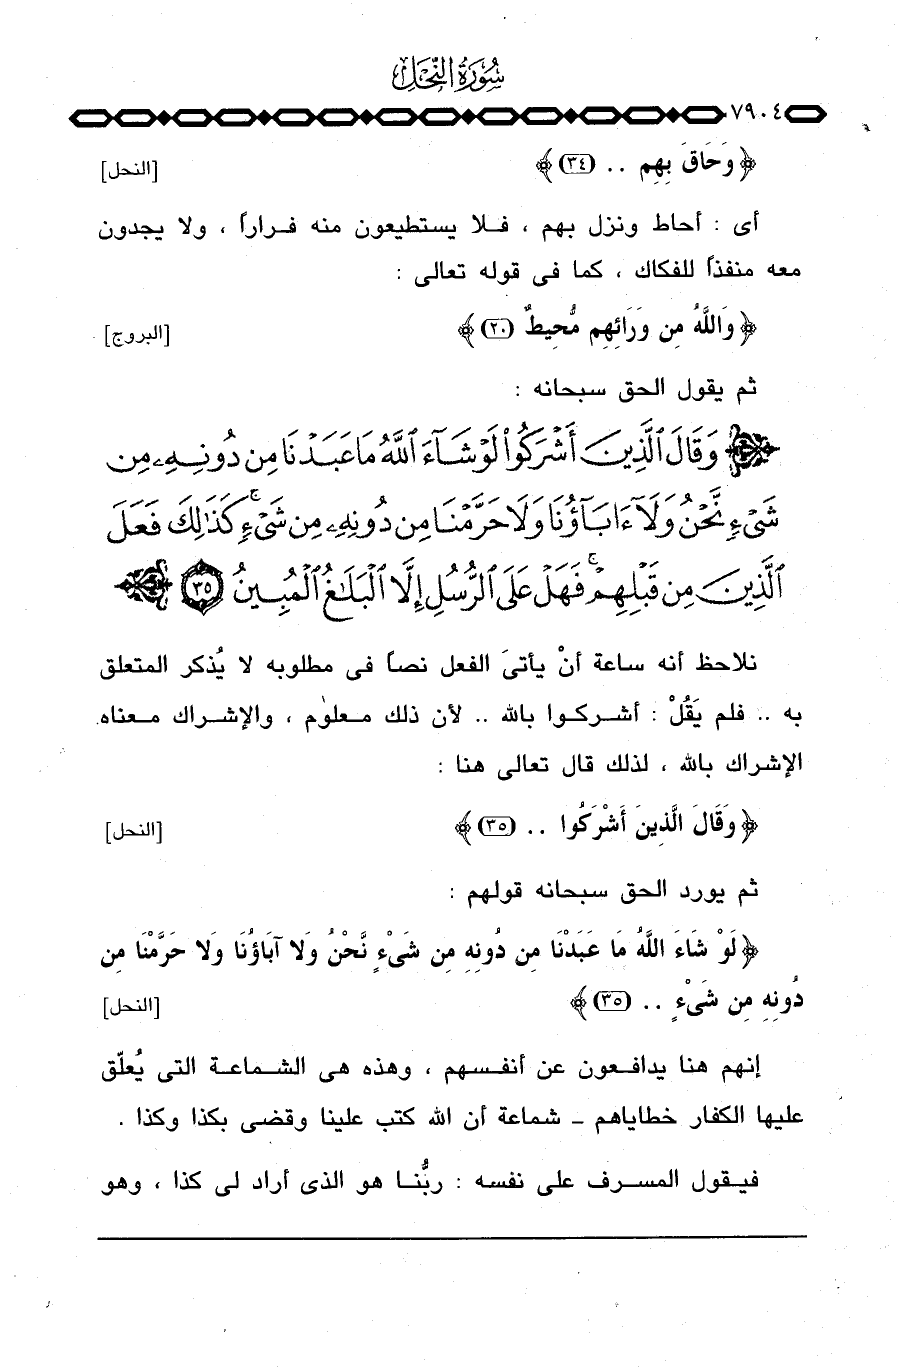 سُورَةُ النَّحْلِ
٧٩٠٤
﴿ وَحَاقَ بِهِم .. (٣٤) ﴾ [النحل]
أى : أحاط ونزل بهم ، فـلا يستطيعون منه فـراراً ، ولا يجدون
معه منفذاً للفكاك ، كما فى قوله تعالى :
﴿ وَاللَّهُ مِن وَرَائِهِم مُّحِيطٌ (٢٠) ﴾ [البروج]
ثم يقول الحق سبحانه :
وَقَالَ ٱلَّذِينَ أَشْرَكُواْ لَوْ شَآءَ ٱللَّهُ مَا عَبَدْنَا مِن دُونِهِۦ مِن
شَىْءٍ نَّحْنُ وَلَآ ءَابَآؤُنَا وَلَا حَرَّمْنَا مِن دُونِهِۦ مِن شَىْءٍ كَذَٰلِكَ فَعَلَ
ٱلَّذِينَ مِن قَبْلِهِمْ فَهَلْ عَلَى ٱلرُّسُلِ إِلَّا ٱلْبَلَٰغُ ٱلْمُبِينُ ٣٥
نلاحظ أنه ساعة أنْ يأتىَ الفعل نصاً فى مطلوبه لا يُذكر المتعلق
به .. فلم يَقُلْ : أشـركـوا بالله .. لأن ذلك مـعلوم ، والإشـراك مـعناه
الإشراك بالله ، لذلك قال تعالى هنا :
﴿ وَقَالَ الَّذِينَ أَشْرَكُوا .. (٣٥) ﴾ [النحل]
ثم يورد الحق سبحانه قولهم :
﴿ لَوْ شَاءَ اللَّهُ مَا عَبَدْنَا مِن دُونِهِ مِن شَىْءٍ نَّحْنُ وَلا آبَاؤُنَا وَلا حَرَّمْنَا مِن
دُونِهِ مِن شَىْءٍ .. (٣٥) ﴾ [النحل]
إنهم هنا يدافـعون عن أنفـسهم ، وهذه هى الشـماعـة التى يُعلّق
عليها الكفار خطاياهم – شماعة أن الله كتب علينا وقضى بكذا وكذا .
فيـقول المسـرف على نفسه : ربُّنـا هو الذى أراد لى كذا ، وهو